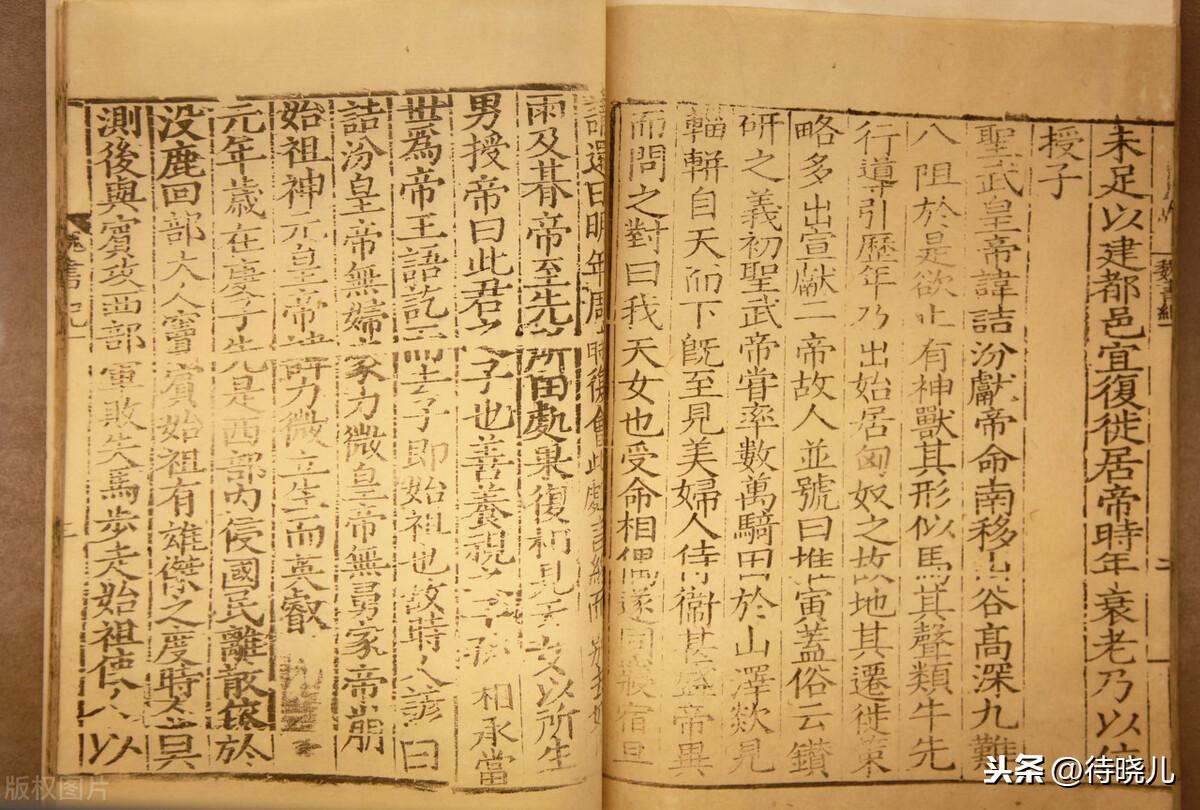 未足以建都邑宜復徙居帝時年衰老乃以位
授子
聖武皇帝諱詰汾獻帝命南移山谷高深九難
八阻於是欲止有神獸其形似馬其聲類牛先
行導引歷年乃出始居匈奴之故地其遷徙策
略多出宣獻二帝故人並號曰推寅蓋俗云鑽
研之義初聖武帝嘗率數萬騎田於山澤欻見
輜軿自天而下旣至見美婦人侍衞甚盛帝異
而問之對曰我天女也受命相偶遂同寢宿旦
請還曰明年周時復會此處言終而
雨及朞帝至先所田處果復相見天女以所生
男授帝曰此君之子也善養視之子孫相承當
世爲帝王語訖而去子即始祖也故時人諺曰
詰汾皇帝無婦家力微皇帝無舅家帝崩
始祖神元皇帝諱力微立生而英叡
元年歲在庚子先是西部內侵國民離散依於
没鹿回部大人竇賓始祖有雄傑之度時人莫
測後與賓攻西部軍敗失馬步走始祖使人以
魏書紀一
二
魏書紀一
三
版权图片
头条 @待晓儿